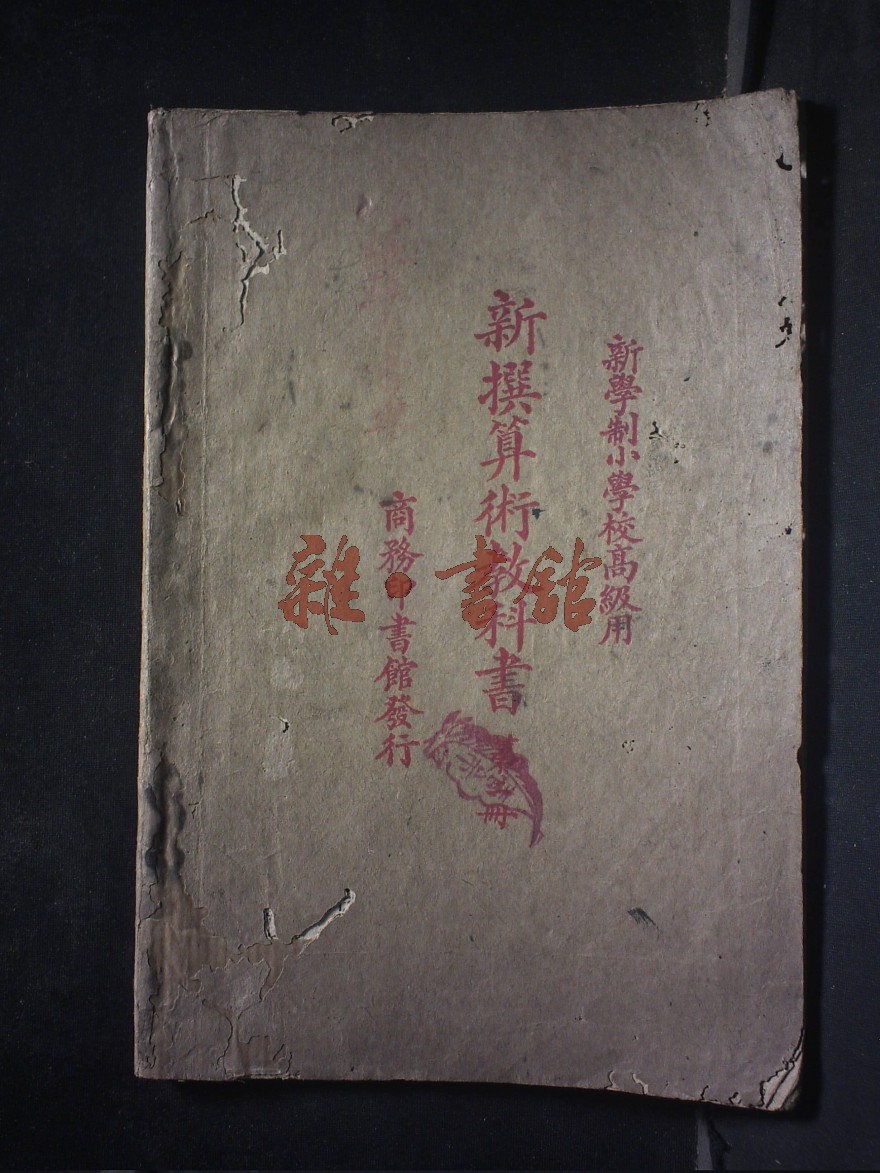 新學制小學校高級用
新撰算術教科書
冊
商務印書館發行
雜·書館